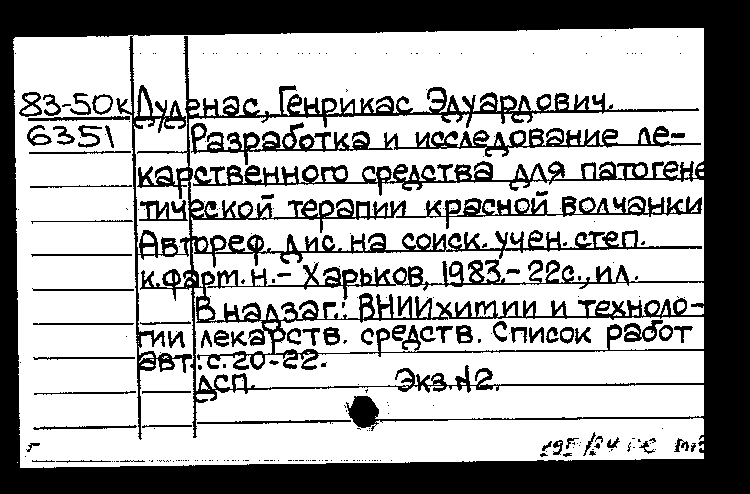 83-50к Луденас, Генрикас Эдуардович.
6351 Разработка и исследование ле-
карственного средства для патогене
тической терапии красной волчанки
Автореф. дис. на соиск. учен. степ.
к.фарт.н.- Харьков, 1983.- 22с., ил.
В надзаг.: ВНИИхитии и техноло-
гии лекарств. средств. Список работ
авт.: с. 20-22.
ДСП. Экз.N2.